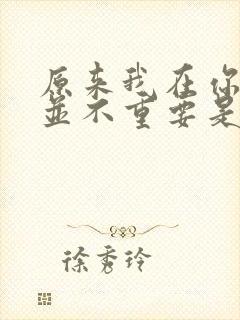 原来我在你
并不重要是
徐秀玲